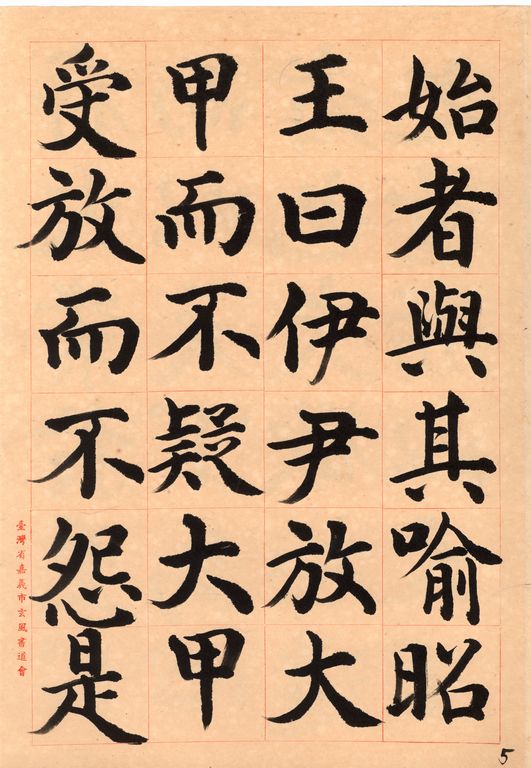 始者與其喻昭
王曰伊尹放大
甲而不疑大甲
受放而不怨是
臺灣省嘉義市玄風書道會
5